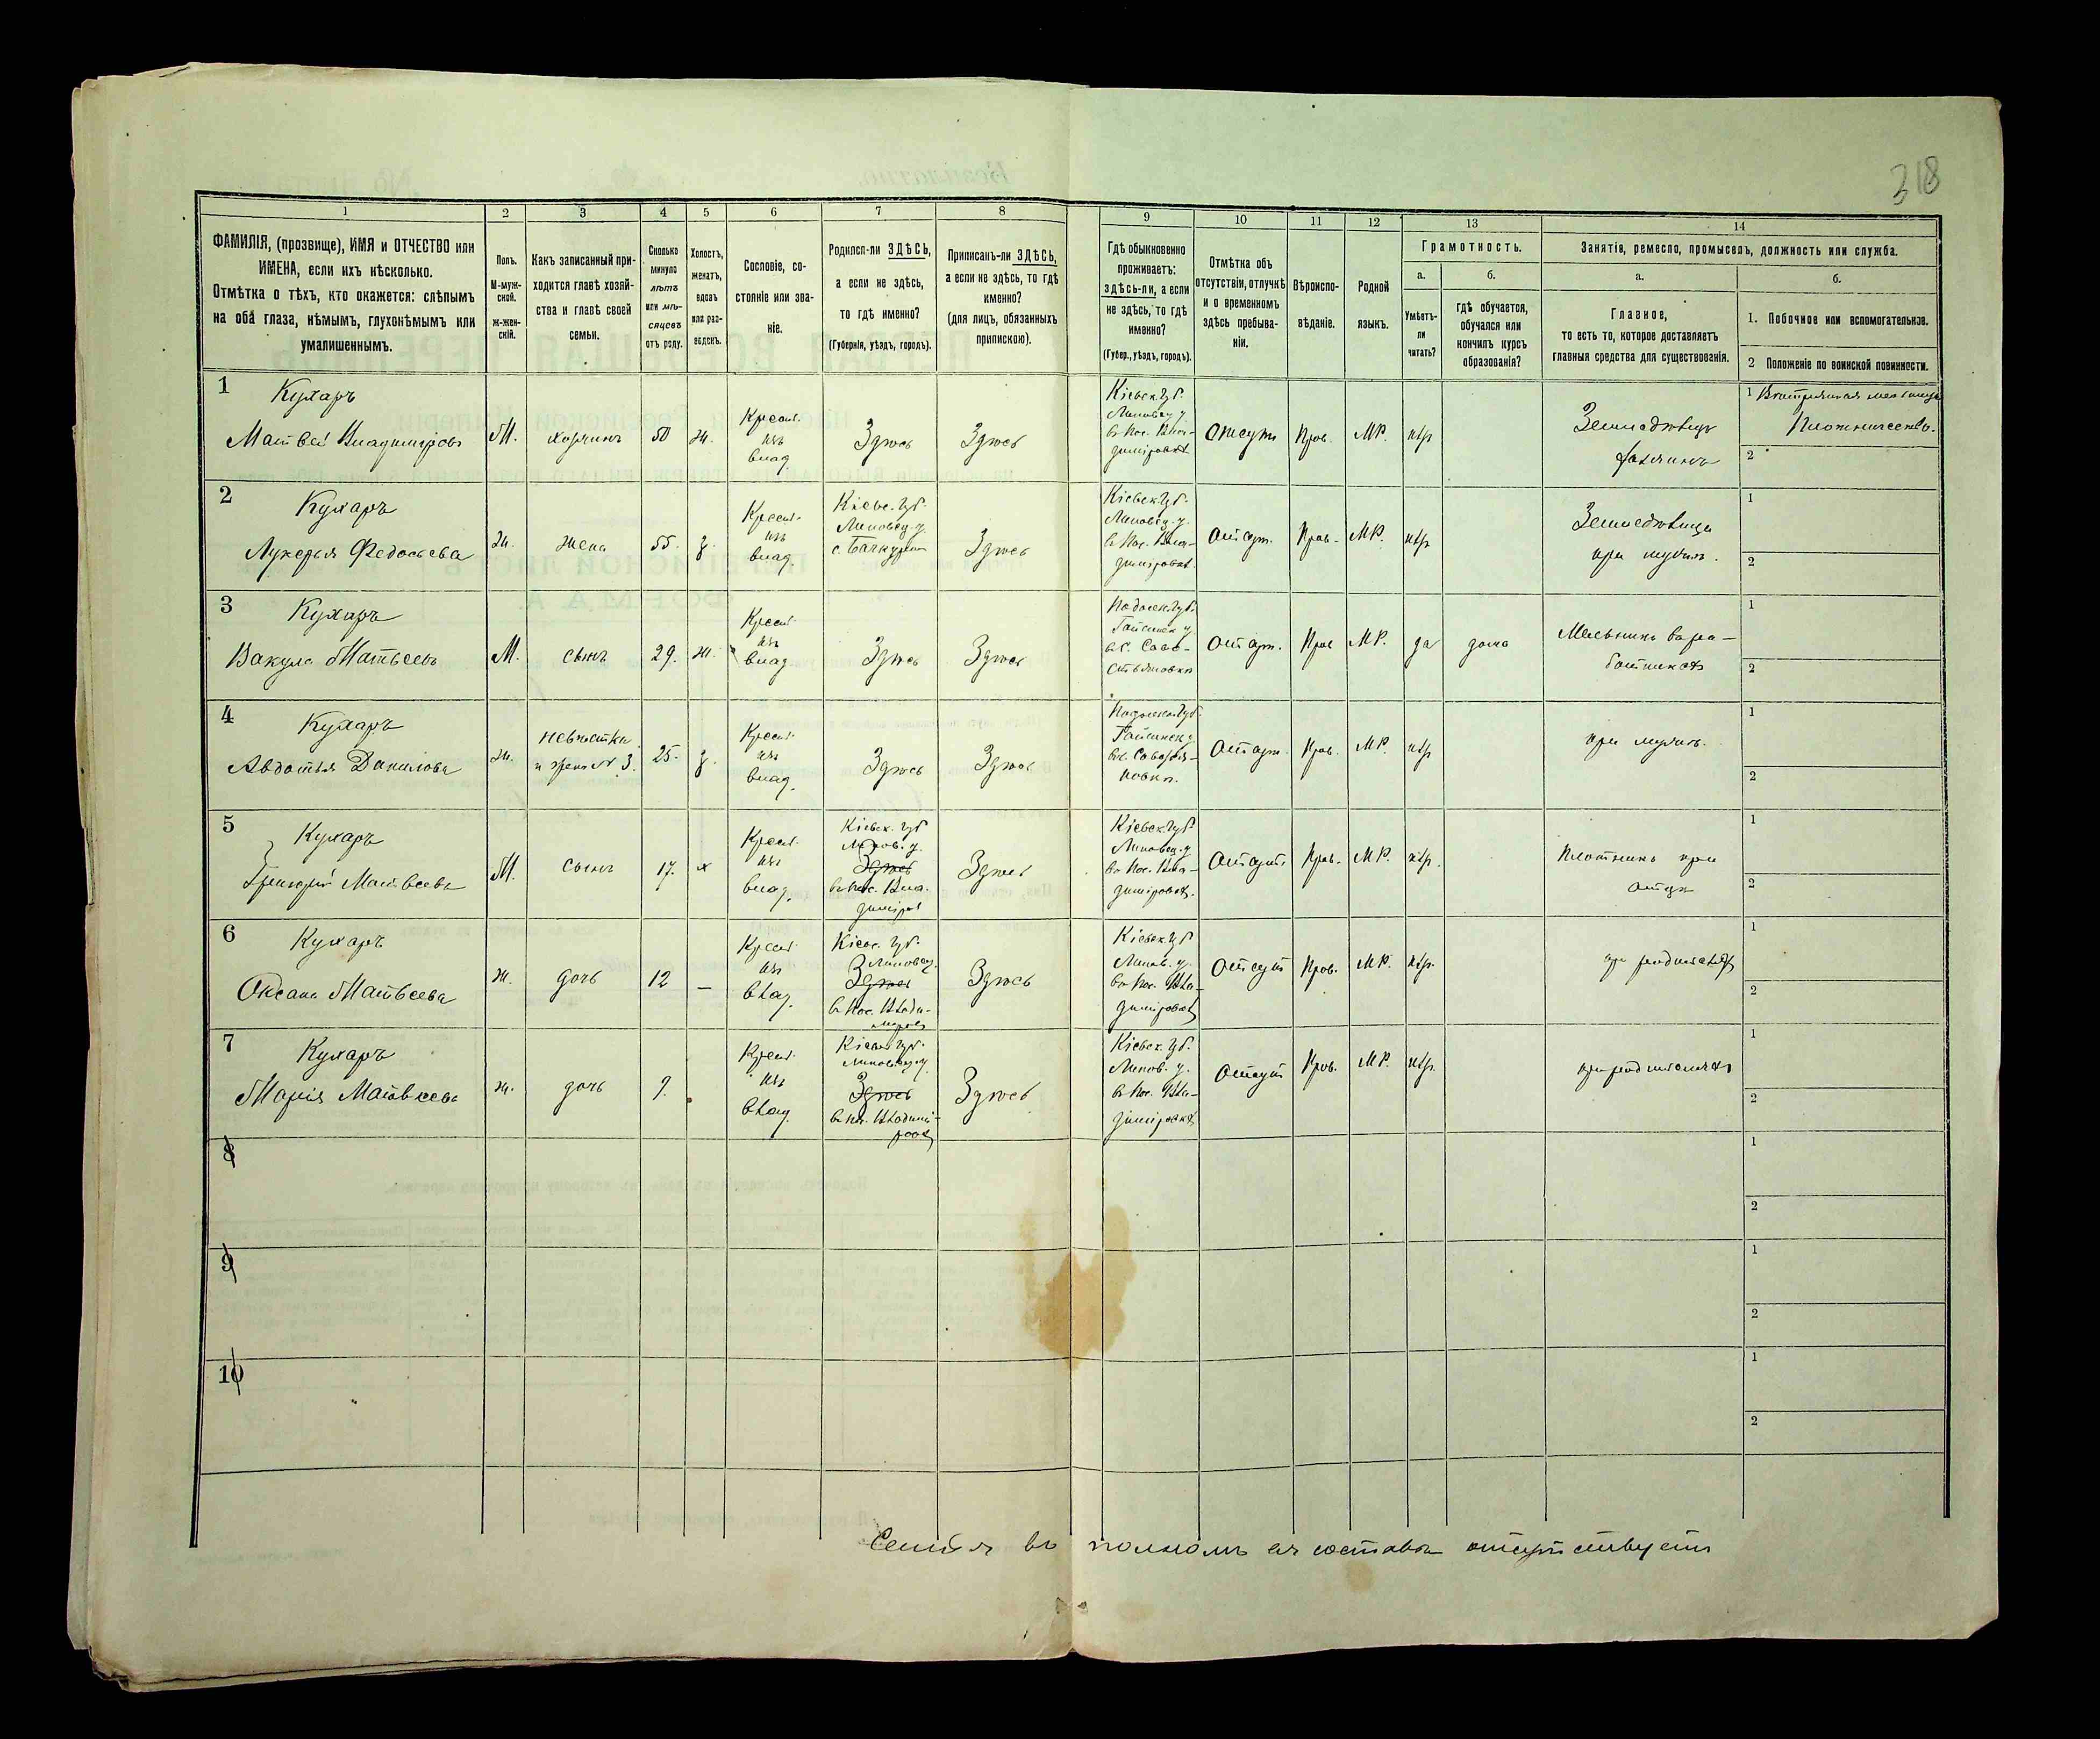 318
1 2 3 4 5 6 7 8 9 10 11 12 13 14
ФАМИЛІЯ, (прозвище), ИМЯ и ОТЧЕСТВО или
ИМЕНА, если ихъ нѣсколько.
Отмѣтка о тѣхъ, кто окажется: слѣпымъ
на оба глаза, нѣмымъ, глухонѣмымъ или
умалишеннымъ.
Полъ.
М-муж-
ской.
ж-жен-
скій.
Какъ записанный при-
ходится главѣ хозяй-
ства и главѣ своей
семьи.
Сколько
минуло
лѣтъ
или мѣ-
сяцевъ
отъ роду.
Холостъ,
женатъ,
вдовъ
или раз-
веденъ.
Сословіе, со-
стояніе или зва-
ніе.
Родился-ли ЗДѢСЬ,
а если не здѣсь,
то гдѣ именно?
(Губернія, уѣздъ, городъ).
Приписанъ-ли ЗДѢСЬ,
а если не здѣсь, то гдѣ
именно?
(для лицъ, обязанныхъ
припискою).
Гдѣ обыкновенно
проживаетъ:
здѣсь-ли, а если
не здѣсь, то гдѣ
именно?
(Губер., уѣздъ, городъ).
Отмѣтка объ
отсутствіи, отлучкѣ
и о временномъ
здѣсь пребыва-
ніи.
Вѣроиспо-
вѣданіе.
Родной
языкъ.
Грамотность.
а.
Умѣетъ-
ли
читать?
б.
гдѣ обучается,
обучался или
кончилъ курсъ
образованія?
Занятіе, ремесло, промыселъ, должность или служба.
а.
Главное,
то есть то, которое доставляетъ
главныя средства для существованія.
б.
1. Побочное или вспомогательное.
2 Положеніе по воинской повинности.
1
Кухаръ
Матвей Владимировъ
М.
хозяинъ
50
ж.
Крест.
изъ
влад.
Здѣсь
Здѣсь
Кіевск. губ.
Липовец. у.
в пос. Вла-
диміровкѣ
отсутъ
Прав.
МР.
нѣтъ
Земледѣлецъ
хозяинъ
1
Плотничество.
2
2
Кухаръ
Лукерья Федосьева
ж.
жена
55.
з.
Крест.
изъ
влад.
Кіевс. губ.
Липовец. у.
Здѣсь
Кіевск. губ.
Липовец. у.
в пос. Вла-
диміровкѣ
Отсут.
Прав.
МР.
нѣтъ
при мужѣ.
1
2
3
Кухаръ
Вакула Матвеевъ
М.
сынъ
29.
ж.
Крест.
изъ
влад.
Здѣсь
Здѣсь
Подольск. губ.
Гайсинск. у.
Отсут.
Прав
МР.
да
дома
1
2
4
Кухаръ
Авдотья Данилова
ж.
невѣстка
и жена № 3.
25.
з.
Крест.
изъ
влад.
Здѣсь
Здѣсь
Подольск. губ.
Гайсинск. у.
Отсут.
Прав.
МР.
нѣтъ
при мужѣ.
1
2
5
Кухаръ
Григорій Матвеевъ
М.
сынъ
17.
х
Крест.
изъ
влад.
Кіевск. губ
Липов. у.
Здѣсь
в пос. Вла-
диміров
Здѣсь
Кіевск. губ.
Липовец. у.
в пос. Вла-
диміровкѣ.
Отсут.
Прав.
МР.
нѣтъ.
Плотникъ при
отцѣ
1
2
6
Кухаръ
Оксана Матвеева
ж.
дочь
12
—
Крест.
изъ
влад.
Кіевс. губ.
Липовец.
Здѣсь
в пос. Влади-
Здѣсь
Кіевск. губ
Липов. у.
в пос. Вла-
диміровкѣ
Отсут
Прав.
МР.
нѣтъ.
при родителяхъ
1
2
7
Кухаръ
Марія Матвеева
ж.
дочь
9.
Крест.
изъ
влад.
Кіевск. губ.
Липовец. у.
Здѣсь
в пос. Владимі-
ровк
Здѣсь
Кіевск. губ.
Липов. у.
в пос. Вла-
диміровкѣ
Отсут
Прав.
МР.
нѣтъ.
при родителяхъ
1
2
8
1
2
9
1
2
10
1
2
Семья въ полномъ ея составѣ отсутствуетъ